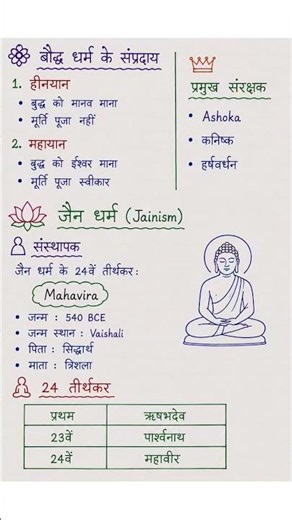 बौद्ध धर्म के संप्रदाय
1. हीनयान
• बुद्ध को मानव माना
• मूर्ति पूजा नहीं
2. महायान
• बुद्ध को ईश्वर माना
• मूर्ति पूजा स्वीकार
प्रमुख संरक्षक
• Ashoka
• कनिष्क
• हर्षवर्धन
जैन धर्म (Jainism)
संस्थापक
जैन धर्म के 24वें तीर्थंकर:
Mahavira
• जन्म : 540 BCE
• जन्म स्थान : Vaishali
• पिता : सिद्धार्थ
• माता : त्रिशला
24 तीर्थंकर
प्रथम ऋषभदेव
23वें पार्श्वनाथ
24वें महावीर